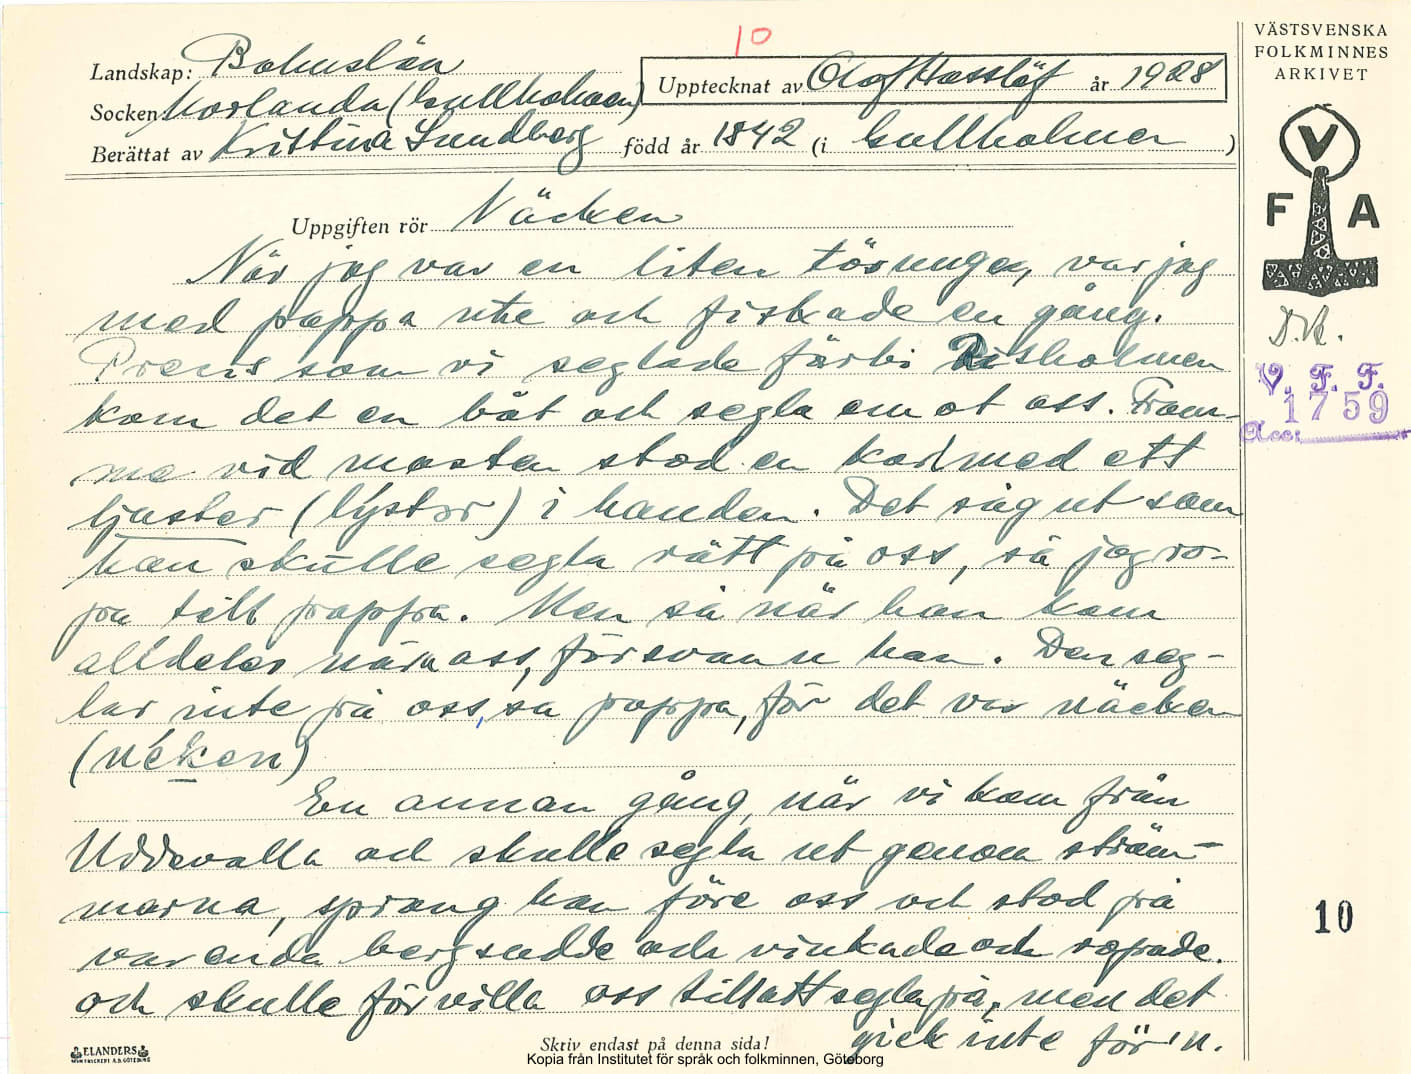 10
Landskap: Bohuslän
Upptecknat av Olof Hasslöf år 1928
Socken: Morlanda (Gullholmen)
Berättat av Kristina Lundberg född år 1842 (i Gullholmen )
Uppgiften rör Näcken
När jag var en liten tösunge, var jag
med pappa ute och fiskade en gång.
Precis som vi seglade förbi holmen
kom det en båt och segla emot oss. Fram-
me vid masten stod en karl med ett
ljuster (lýstər) i handen. Det såg ut som
han skulle segla rätt på oss, så jag ro-
pa till pappa. Men så när han kom
alldeles nära oss, försvann han. Den seg-
lar inte på oss, sa pappa, för det var näcken
(néken)
En annan gång, när vi kom från
Uddevalla och skulle segla ut genom ström-
marna, sprang han före oss och stod på
varenda bergsudde och vinkade och ropade.
och skulle förvilla oss till att segla på, men det
gick inte för'n.
VÄSTSVENSKA
FOLKMINNES
ARKIVET
V
F A
V. F. F.
1759
Acc:
10
ELANDERS
Skriv endast på denna sida!
Kopia från Institutet för språk och folkminnen, Göteborg